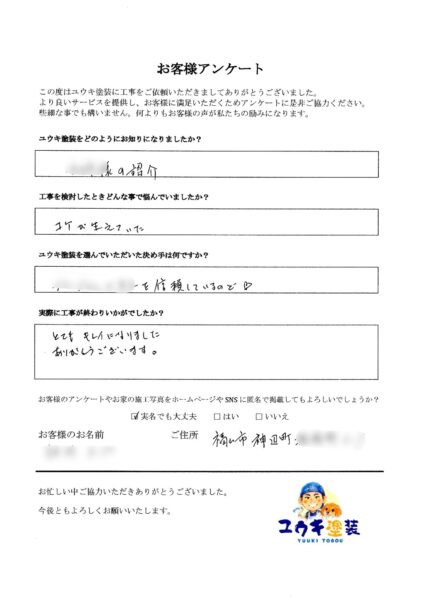 お客様アンケート
この度はユウキ塗装に工事をご依頼いただきましてありがとうございました。
より良いサービスを提供し、お客様に満足いただくためアンケートに是非ご協力ください。
些細な事でも構いません。何よりもお客様の声が私たちの励みになります。
ユウキ塗装をどのようにお知りになりましたか？
様の紹介
工事を検討したときどんな事で悩んでいましたか？
コケが生えていた
ユウキ塗装を選んでいただいた決め手は何ですか？
を信頼しているので♡
実際に工事が終わりいかがでしたか？
とても キレイになりました
ありがとうございます。
お客様のアンケートやお家の施工写真をホームページや SNS に匿名で掲載してもよろしいでしょうか？
☑実名でも大丈夫 □はい □いいえ
お客様のお名前 ご住所 福山市 神辺町
お忙しい中ご協力いただきありがとうございました。
今後ともよろしくお願いいたします。
ユウキ塗装
YUUKI TOSOU